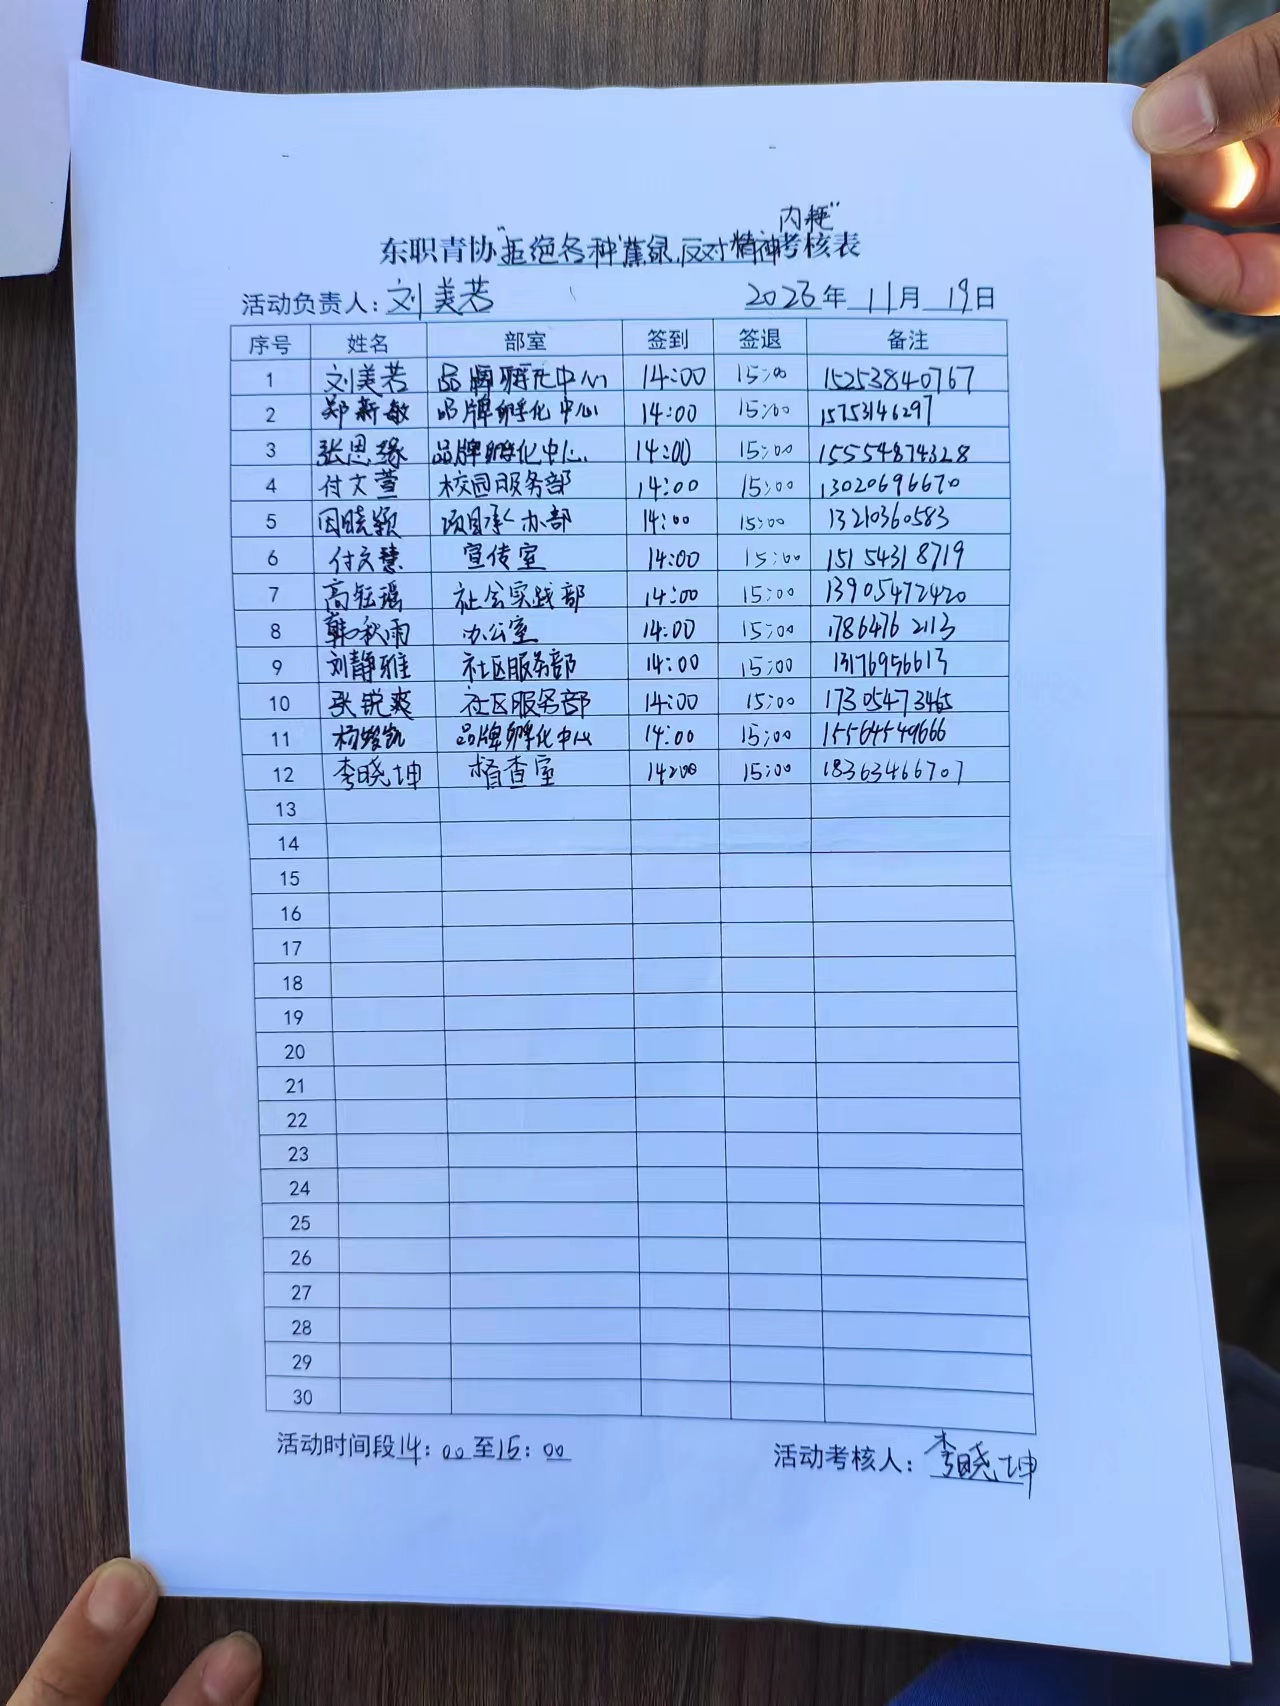 内耗"
东职青协"拒绝各种'蕉绿,反对精神考核表
活动负责人:刘美芳 2023年 11月 19日
序号 姓名 部室 签到 签退 备注
1 刘美芳 品牌孵化中心 14:00 15:00 15253840767
2 郑新敏 品牌孵化中心 14:00 15:00 15753146297
3 张思缘 品牌孵化中心 14:00 15:00 15554874328
4 付文萱 校园服务部 14:00 15:00 13020696670
5 田晓颖 项目承办部 14:00 15:00 13210360583
6 付文慧 宣传室 14:00 15:00 15154318719
7 高钰瑶 社会实践部 14:00 15:00 13905472420
8 韩秋雨 办公室 14:00 15:00 17864762113
9 刘静雅 社区服务部 14:00 15:00 13176956613
10 张锐爽 社区服务部 14:00 15:00 17305473465
11 杨骏凯 品牌孵化中心 14:00 15:00 15564549666
12 李晓坤 督查室 14:00 15:00 18363466707
13
14
15
16
17
18
19
20
21
22
23
24
25
26
27
28
29
30
活动时间段14:00至15:00 活动考核人:李晓坤